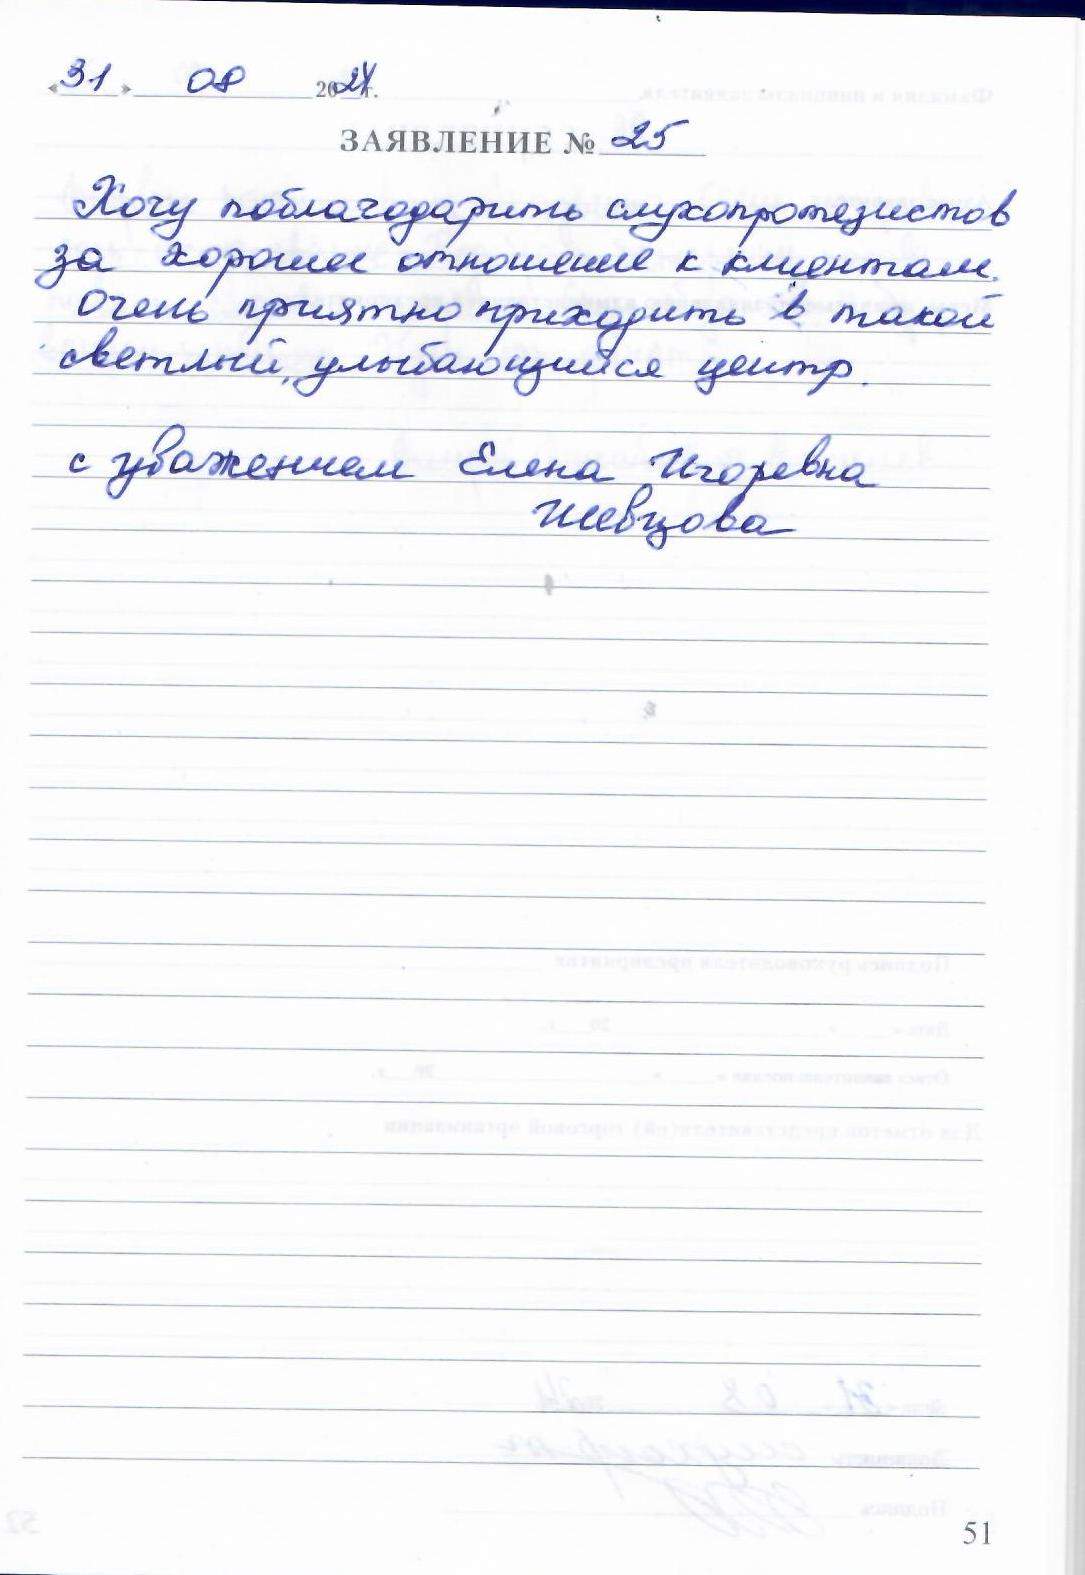 «31» 08 2024г.
ЗАЯВЛЕНИЕ № 25
Хочу поблагодарить слухопротезистов
за хорошее отношение к клиентам.
Очень приятно приходить в такой
светлый, улыбающийся центр.
с уважением Елена Игоревна
Шевцова
51